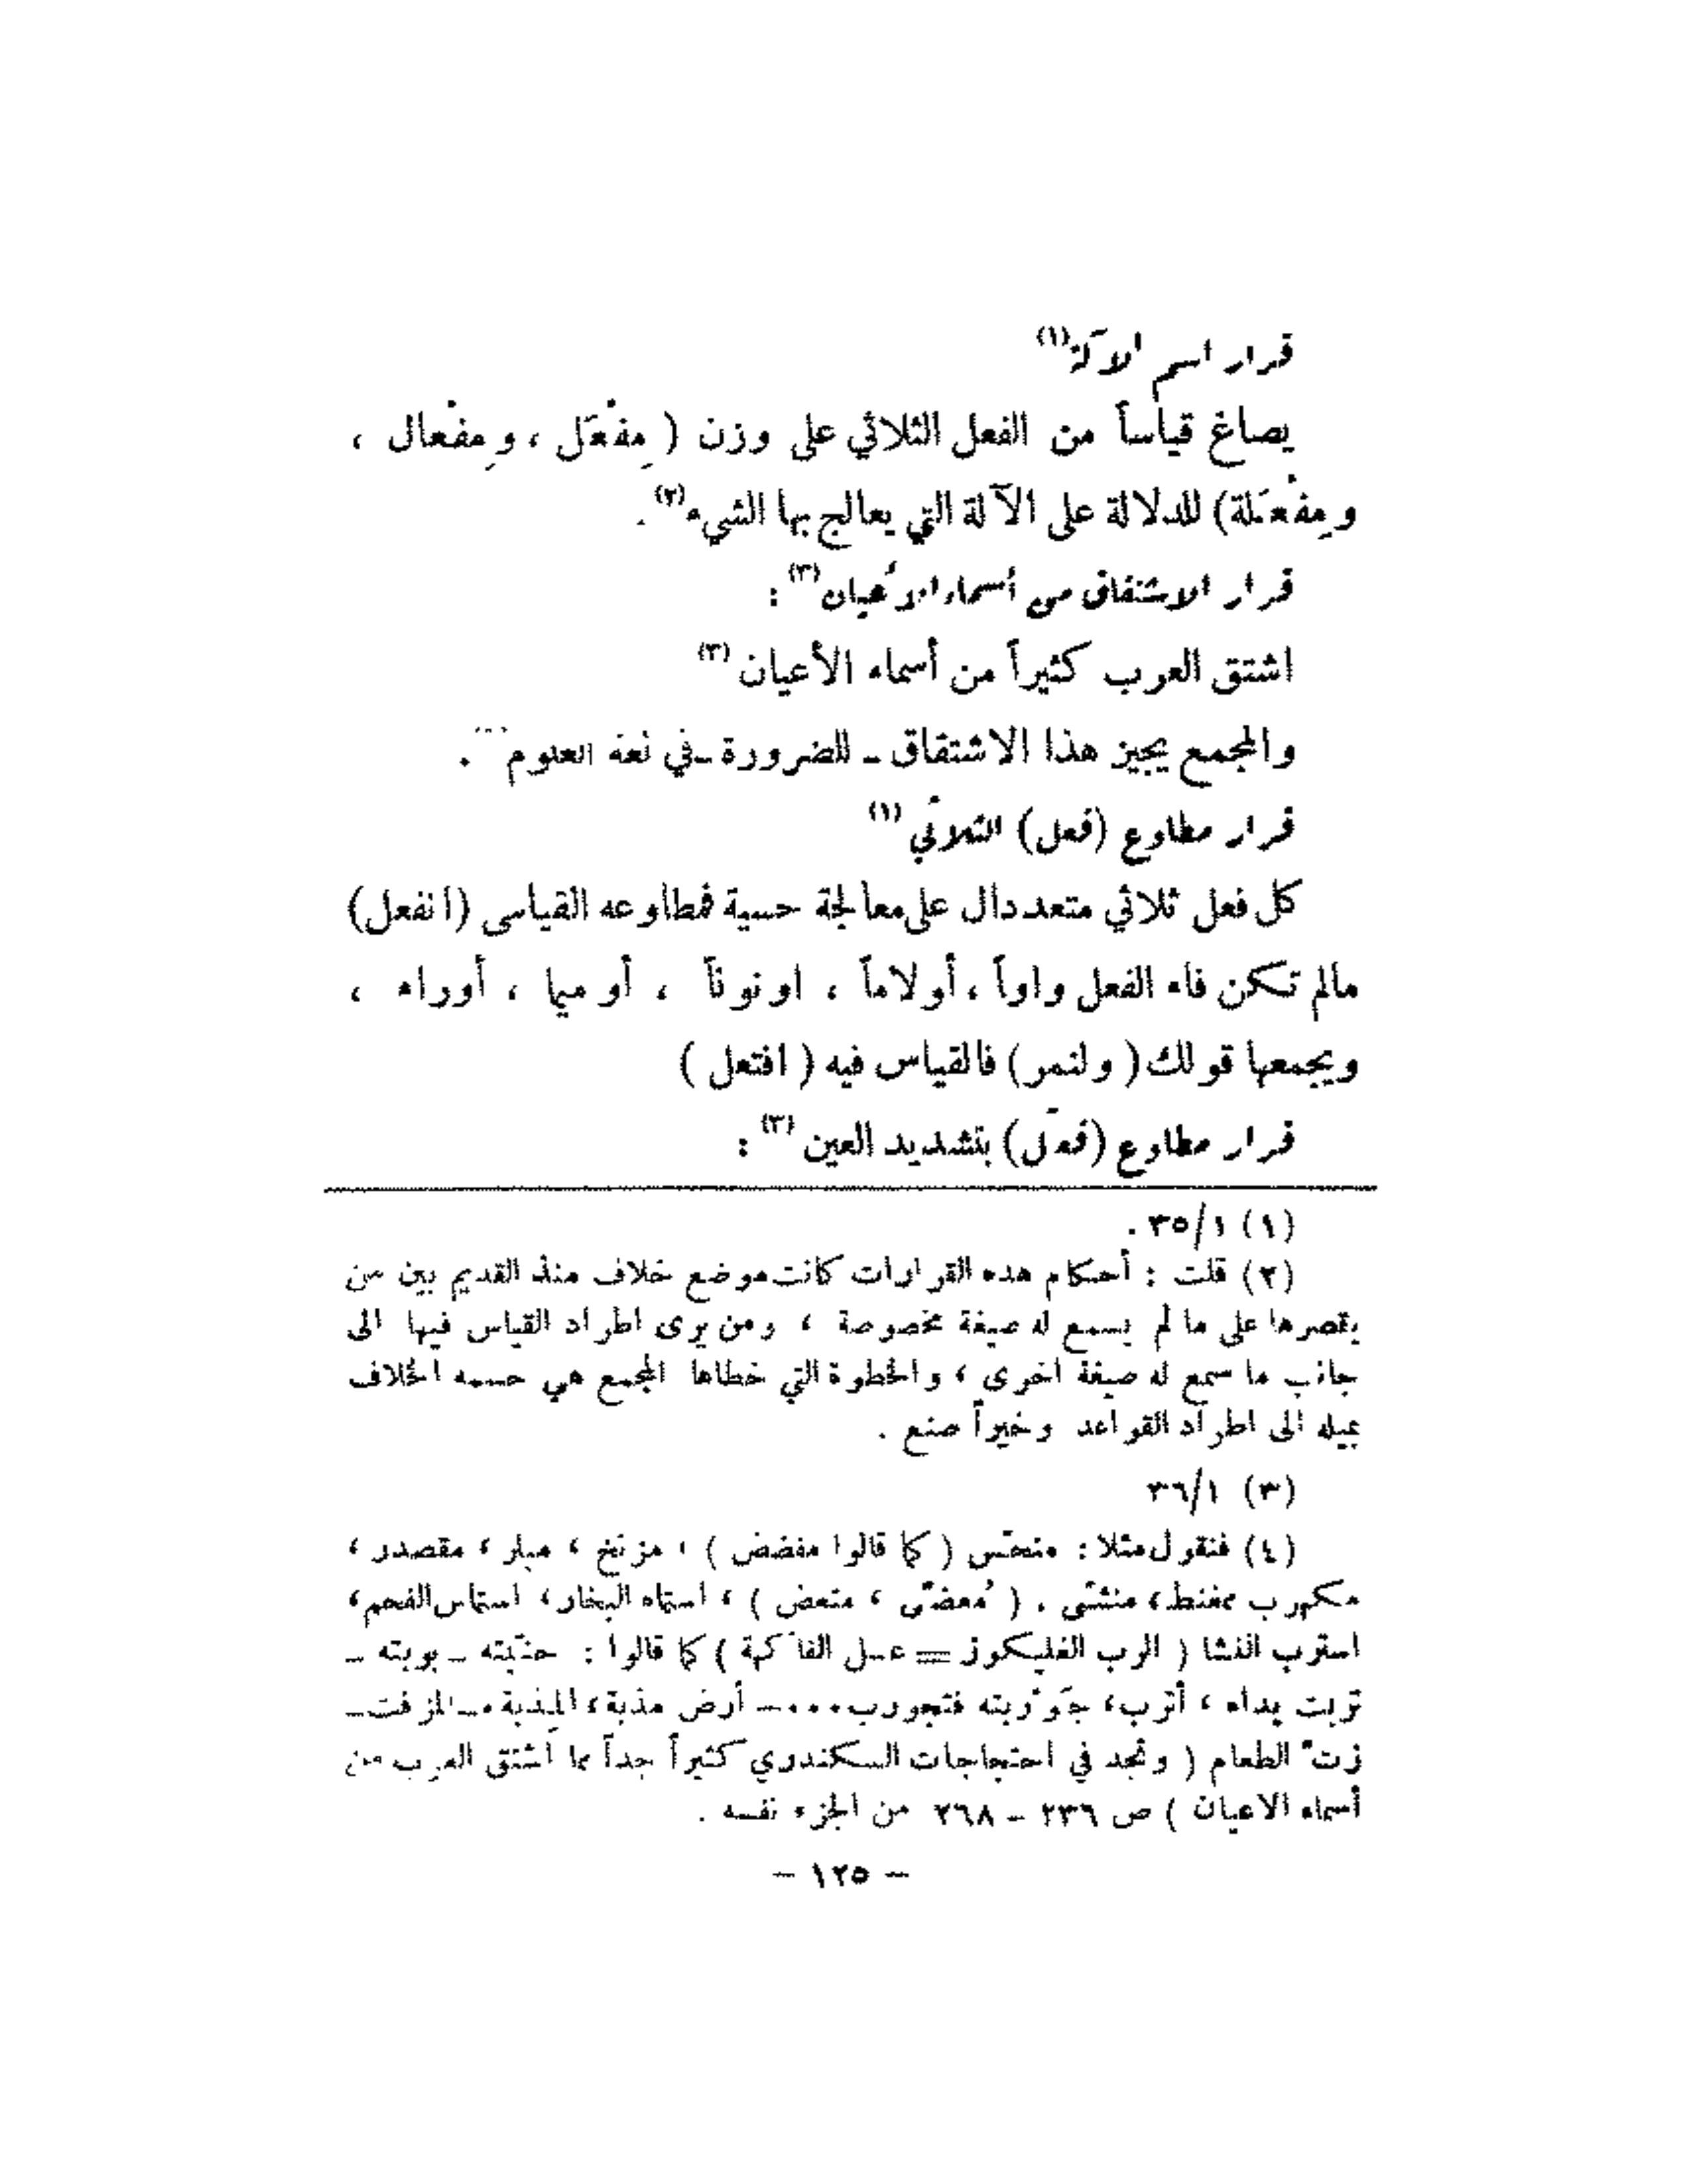 قرار اسم الآلة(١)
يصاغ قياساً من الفعل الثلاثي على وزن ( مِفْعَل ، ومِفْعال ،
ومِفْعَلة) للدلالة على الآلة التي يعالج بها الشيء(٢) .
قرار الاشتقاق من أسماء الأعيان(٣) :
اشتق العرب كثيراً من أسماء الأعيان(٣)
والمجمع يجيز هذا الاشتقاق ـ للضرورة ـ في لغة العلوم .
قرار مطاوع (فعل) الثلاثي (١)
كل فعل ثلاثي متعد دال على معالجة حسية فمطاوعه القياسي (انفعل)
مالم تكن فاء الفعل واواً ، أولاماً ، اونوناً ، أو ميما ، أوراء ،
ويجمعها قولك ( ولنمر) فالقياس فيه ( افتعل )
قرار مطاوع (فعّل) بتشديد العين (٣) :
(١) ٣٥/١ .
(٢) قلت : أحكام هذه القرارات كانت موضع خلاف منذ القديم بين من
يقصرها على ما لم يسمع له صيغة مخصوصة ، ومن يرى اطراد القياس فيها الى
جانب ما سمع له صيغة اخرى ، والخطوة التي خطاها المجمع هي حسمه الخلاف
بميله الى اطراد القواعد وخيراً صنع .
(٣) ٣٦/١
(٤) فنقول مثلا : منحّس ( كما قالوا مفضض ) ، مزرنخ ، مبلر ، مقصدر ،
مكهرب ممغنط ، منشّى . ( ، ) ، استماه البخار ، استماس الفحم ،
استرب النشا ( الرب الغليكوز = عسل الفاكهة ) كما قالوا : ـ بوبته ـ
تربت يداه ، أترب ، جَوْربته فتجورب ... ـ أرض مذبة ، المِذبة . ـ المزفت ـ
زتّ الطعام ( وتجد في احتجاجات السكندري كثيراً جداً مما اشتق العرب من
أسماء الاعيان ) ص ٢٣٦ ـ ٢٦٨ من الجزء نفسه .
– ١٢٥ –